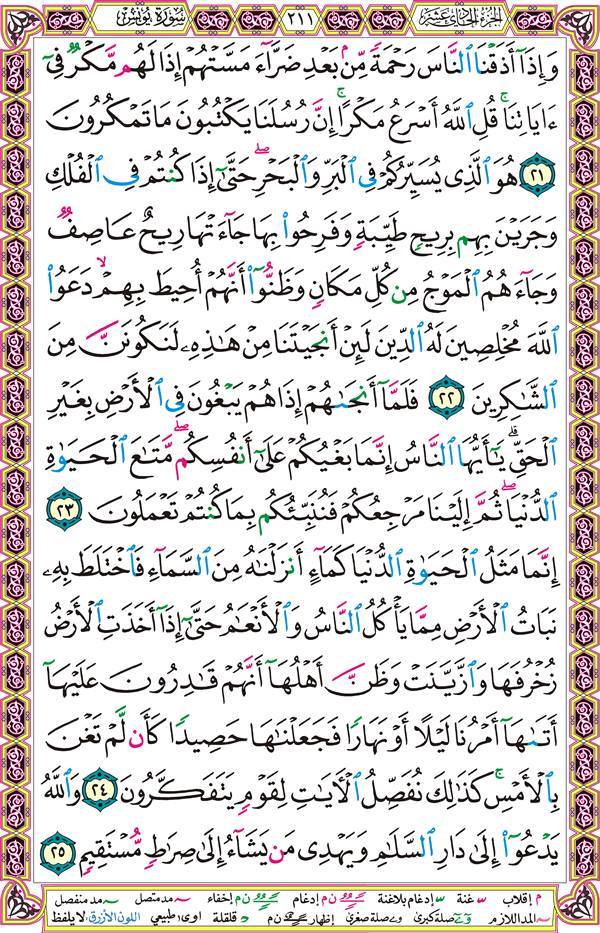 الجزء الحادي عشر ٢١١ سورة يونس
وَإِذَآ أَذَقْنَا ٱلنَّاسَ رَحْمَةً مِّنۢ بَعْدِ ضَرَّآءَ مَسَّتْهُمْ إِذَا لَهُم مَّكْرٌ فِىٓ
ءَايَاتِنَا ۚ قُلِ ٱللَّهُ أَسْرَعُ مَكْرًا ۚ إِنَّ رُسُلَنَا يَكْتُبُونَ مَا تَمْكُرُونَ
٢١ هُوَ ٱلَّذِى يُسَيِّرُكُمْ فِى ٱلْبَرِّ وَٱلْبَحْرِ ۖ حَتَّىٰٓ إِذَا كُنتُمْ فِى ٱلْفُلْكِ
وَجَرَيْنَ بِهِم بِرِيحٍ طَيِّبَةٍ وَفَرِحُوا۟ بِهَا جَآءَتْهَا رِيحٌ عَاصِفٌ
وَجَآءَهُمُ ٱلْمَوْجُ مِن كُلِّ مَكَانٍ وَظَنُّوٓا۟ أَنَّهُمْ أُحِيطَ بِهِمْ ۙ دَعَوُا۟
ٱللَّهَ مُخْلِصِينَ لَهُ ٱلدِّينَ لَئِنْ أَنجَيْتَنَا مِنْ هَـٰذِهِۦ لَنَكُونَنَّ مِنَ
ٱلشَّـٰكِرِينَ ٢٢ فَلَمَّآ أَنجَىٰهُمْ إِذَا هُمْ يَبْغُونَ فِى ٱلْأَرْضِ بِغَيْرِ
ٱلْحَقِّ ۗ يَـٰٓأَيُّهَا ٱلنَّاسُ إِنَّمَا بَغْيُكُمْ عَلَىٰٓ أَنفُسِكُم ۖ مَّتَـٰعَ ٱلْحَيَوٰةِ
ٱلدُّنْيَا ۖ ثُمَّ إِلَيْنَا مَرْجِعُكُمْ فَنُنَبِّئُكُم بِمَا كُنتُمْ تَعْمَلُونَ ٢٣
إِنَّمَا مَثَلُ ٱلْحَيَوٰةِ ٱلدُّنْيَا كَمَآءٍ أَنزَلْنَـٰهُ مِنَ ٱلسَّمَآءِ فَٱخْتَلَطَ بِهِۦ
نَبَاتُ ٱلْأَرْضِ مِمَّا يَأْكُلُ ٱلنَّاسُ وَٱلْأَنْعَـٰمُ حَتَّىٰٓ إِذَآ أَخَذَتِ ٱلْأَرْضُ
زُخْرُفَهَا وَٱزَّيَّنَتْ وَظَنَّ أَهْلُهَآ أَنَّهُمْ قَـٰدِرُونَ عَلَيْهَآ
أَتَىٰهَآ أَمْرُنَا لَيْلًا أَوْ نَهَارًا فَجَعَلْنَـٰهَا حَصِيدًا كَأَن لَّمْ تَغْنَ
بِٱلْأَمْسِ ۚ كَذَٰلِكَ نُفَصِّلُ ٱلْآيَـٰتِ لِقَوْمٍ يَتَفَكَّرُونَ ٢٤ وَٱللَّهُ
يَدْعُوٓا۟ إِلَىٰ دَارِ ٱلسَّلَـٰمِ وَيَهْدِى مَن يَشَآءُ إِلَىٰ صِرَٰطٍ مُّسْتَقِيمٍ ٢٥
م إقلاب غنة إدغام بلاغنة ن م إدغام ن م إخفاء مد متصل مد منفصل
المد اللازم صلة كبرى صلة صغرى إظهار ن م قلقلة اوى: طبيعي اللون الأزرق: لا يلفظ